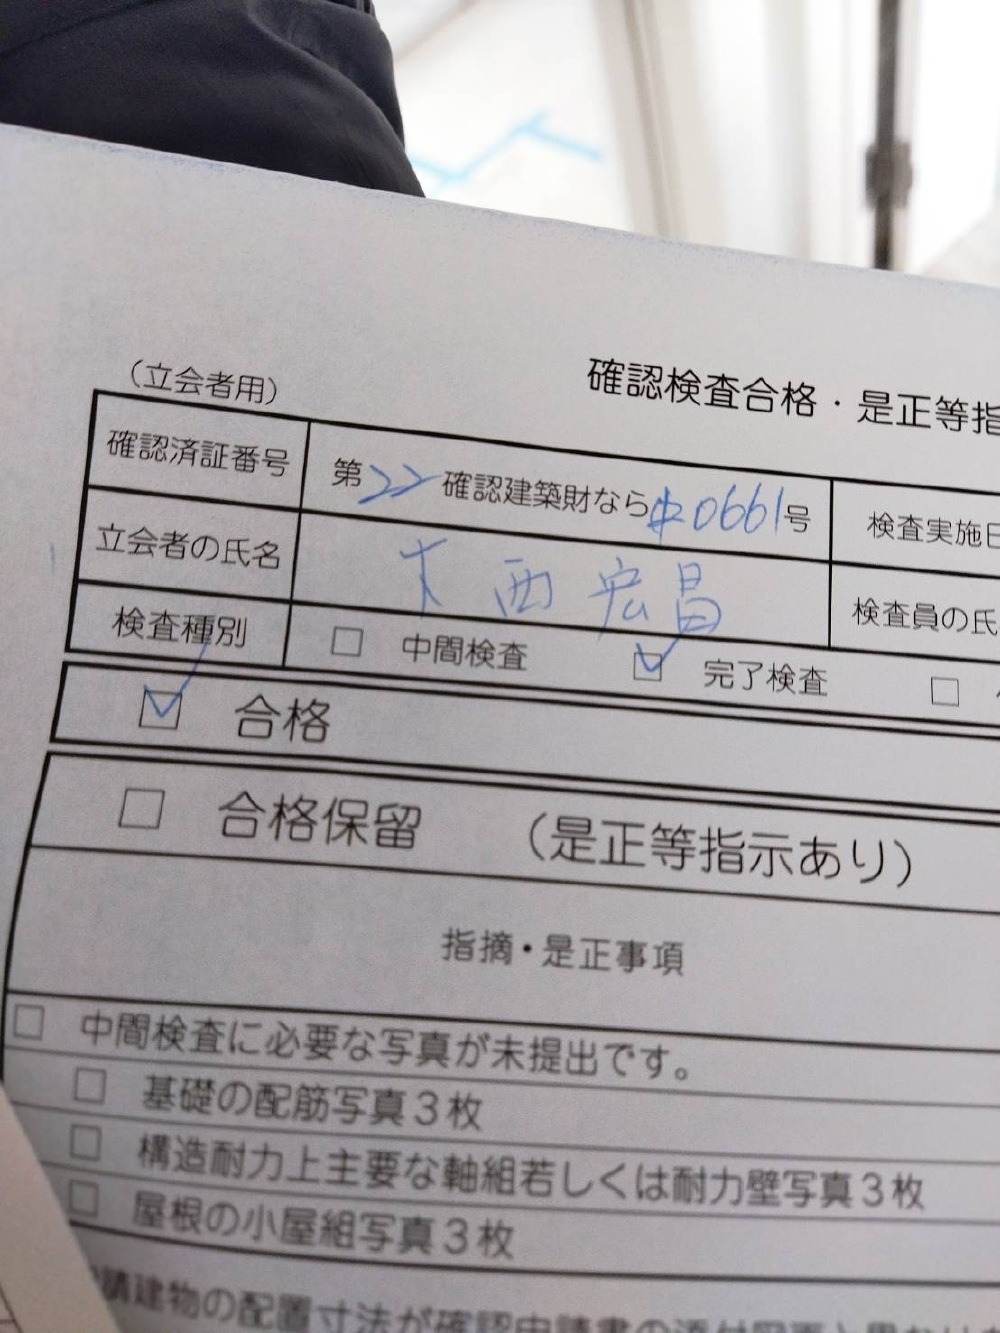 (立会者用)
確認検査合格・是正等指
確認済証番号 第22確認建築財なら中0661号 検査実施日
立会者の氏名 大西宏昌 検査員の氏
検査種別 □ 中間検査 ☑ 完了検査 □
☑ 合格
□ 合格保留 (是正等指示あり)
指摘・是正事項
□ 中間検査に必要な写真が未提出です。
□ 基礎の配筋写真3枚
□ 構造耐力上主要な軸組若しくは耐力壁写真3枚
□ 屋根の小屋組写真3枚
請建物の配置寸法が確認申請書の添付図面と異な